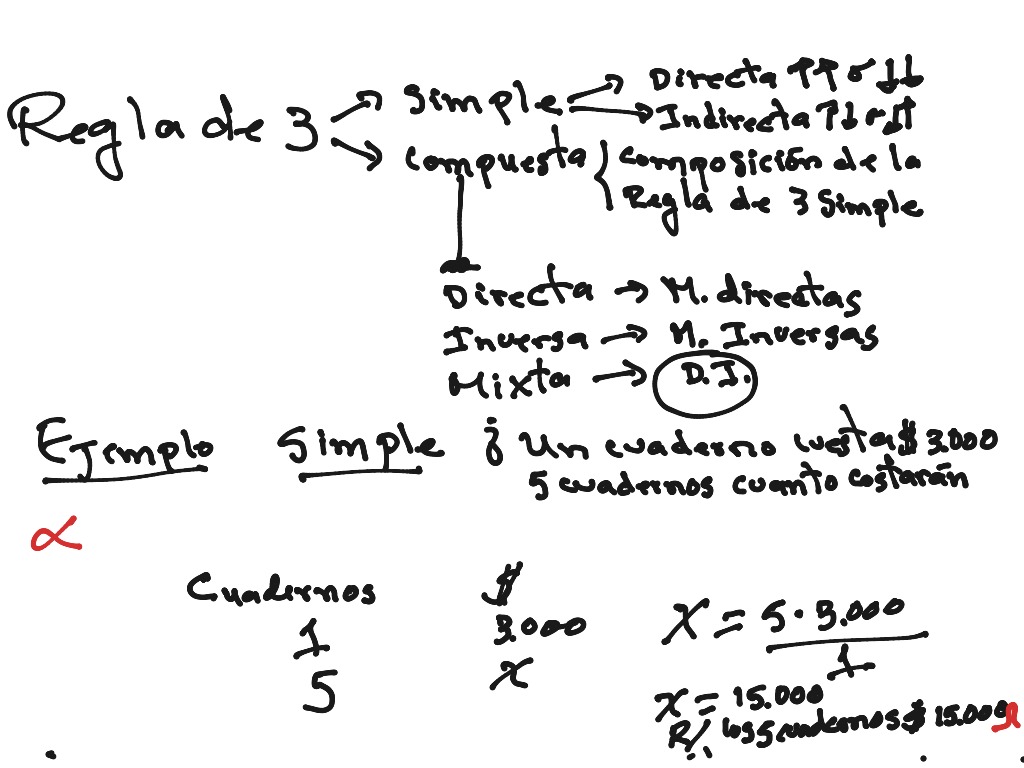 Regla de 3
Simple
Directa ↑↑ o ↓↓
Indirecta ↑↓ o ↓↑
Compuesta
Composición de la
Regla de 3 Simple
Directa → M. directas
Inversa → M. Inversas
Mixta → D.I.
Ejemplo Simple
Un cuaderno cuesta $ 3.000
5 cuadernos cuanto costarán
∝
Cuadernos $
1 3.000
5 x
X = 5 · 3.000
1
x = 15.000
R/ los 5 cuadernos $ 15.000